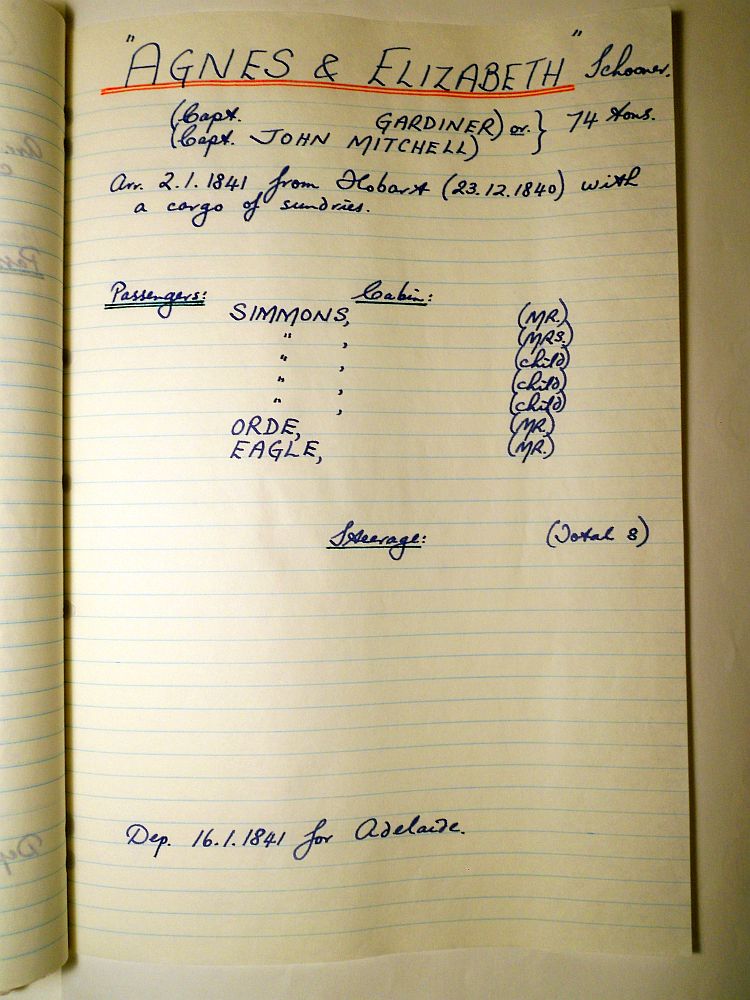 "AGNES & ELIZABETH" Schooner.
(Capt. GARDINER) or } 74 tons.
(Capt. JOHN MITCHELL)
Arr. 2.1.1841 from Hobart (23.12.1840) with
a cargo of sundries.
Passengers: Cabin:
SIMMONS, (MR.)
" , (MRS.)
" , (child)
" , (child)
" , (child)
ORDE, (MR.)
EAGLE, (MR.)
Steerage: (Total 8)
Dep. 16.1.1841 for Adelaide.